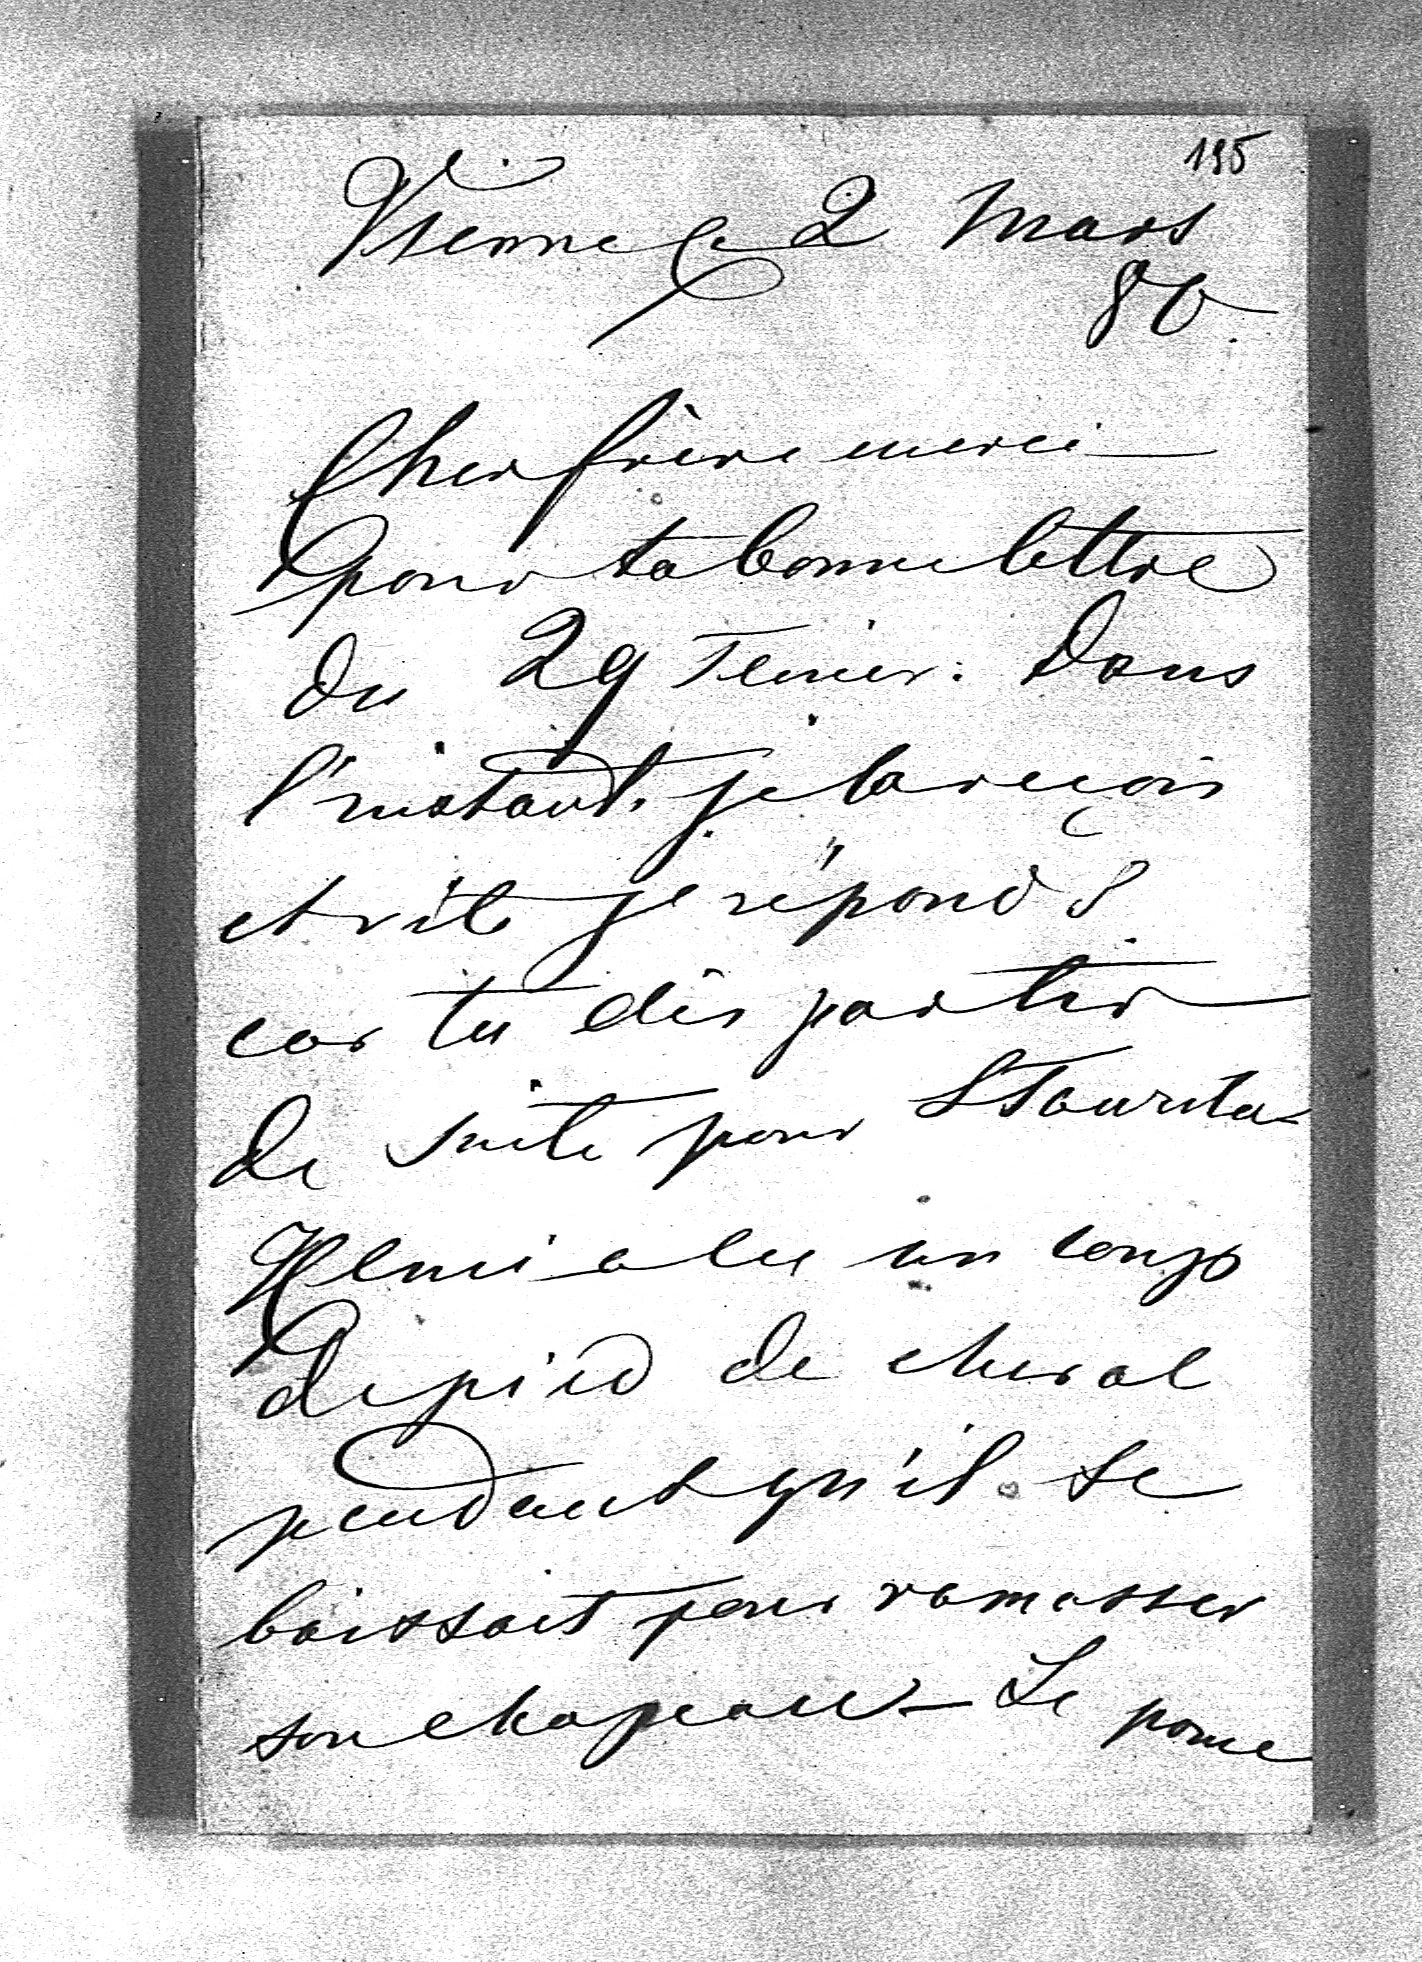 195
Vienne le 2 Mars
80.
Cher frère merci
pour ta bonne lettre
du 29 Fevrier. Dans
l'instant je la reçois
et vite je réponds
car tu dis partir
de suite pour
Henri a eu un coup
de pied de cheval
pendant qu'il se
baissait pour ramasser
son chapeau – Le pauvre